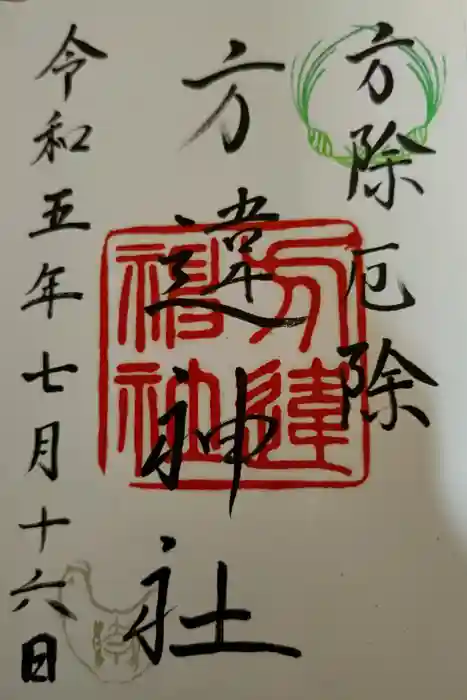 方除厄除
方違神社
方違神社
令和五年七月十六日